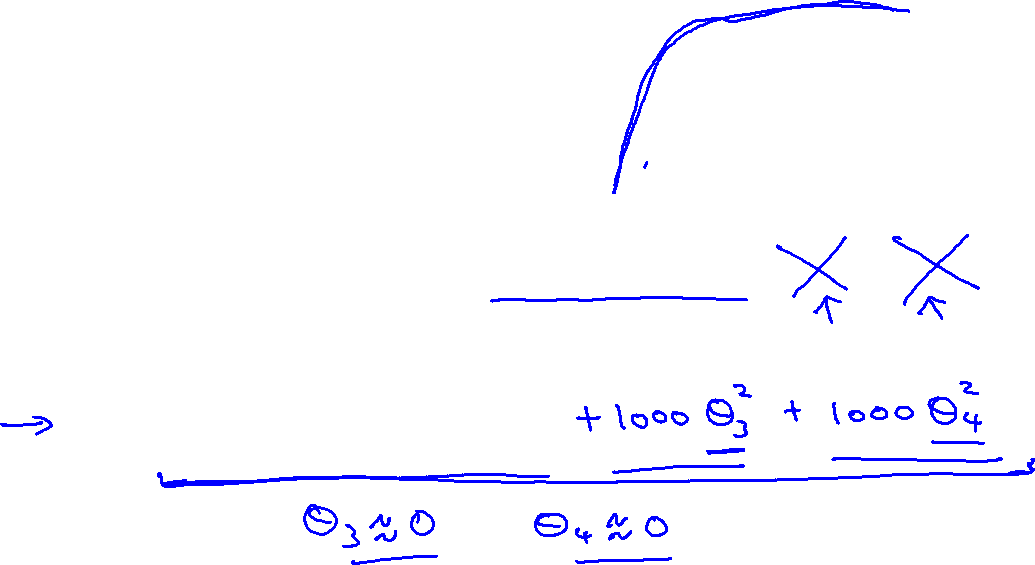 → + 1000 Θ₃² + 1000 Θ₄²
Θ₃ ≈ 0 Θ₄ ≈ 0